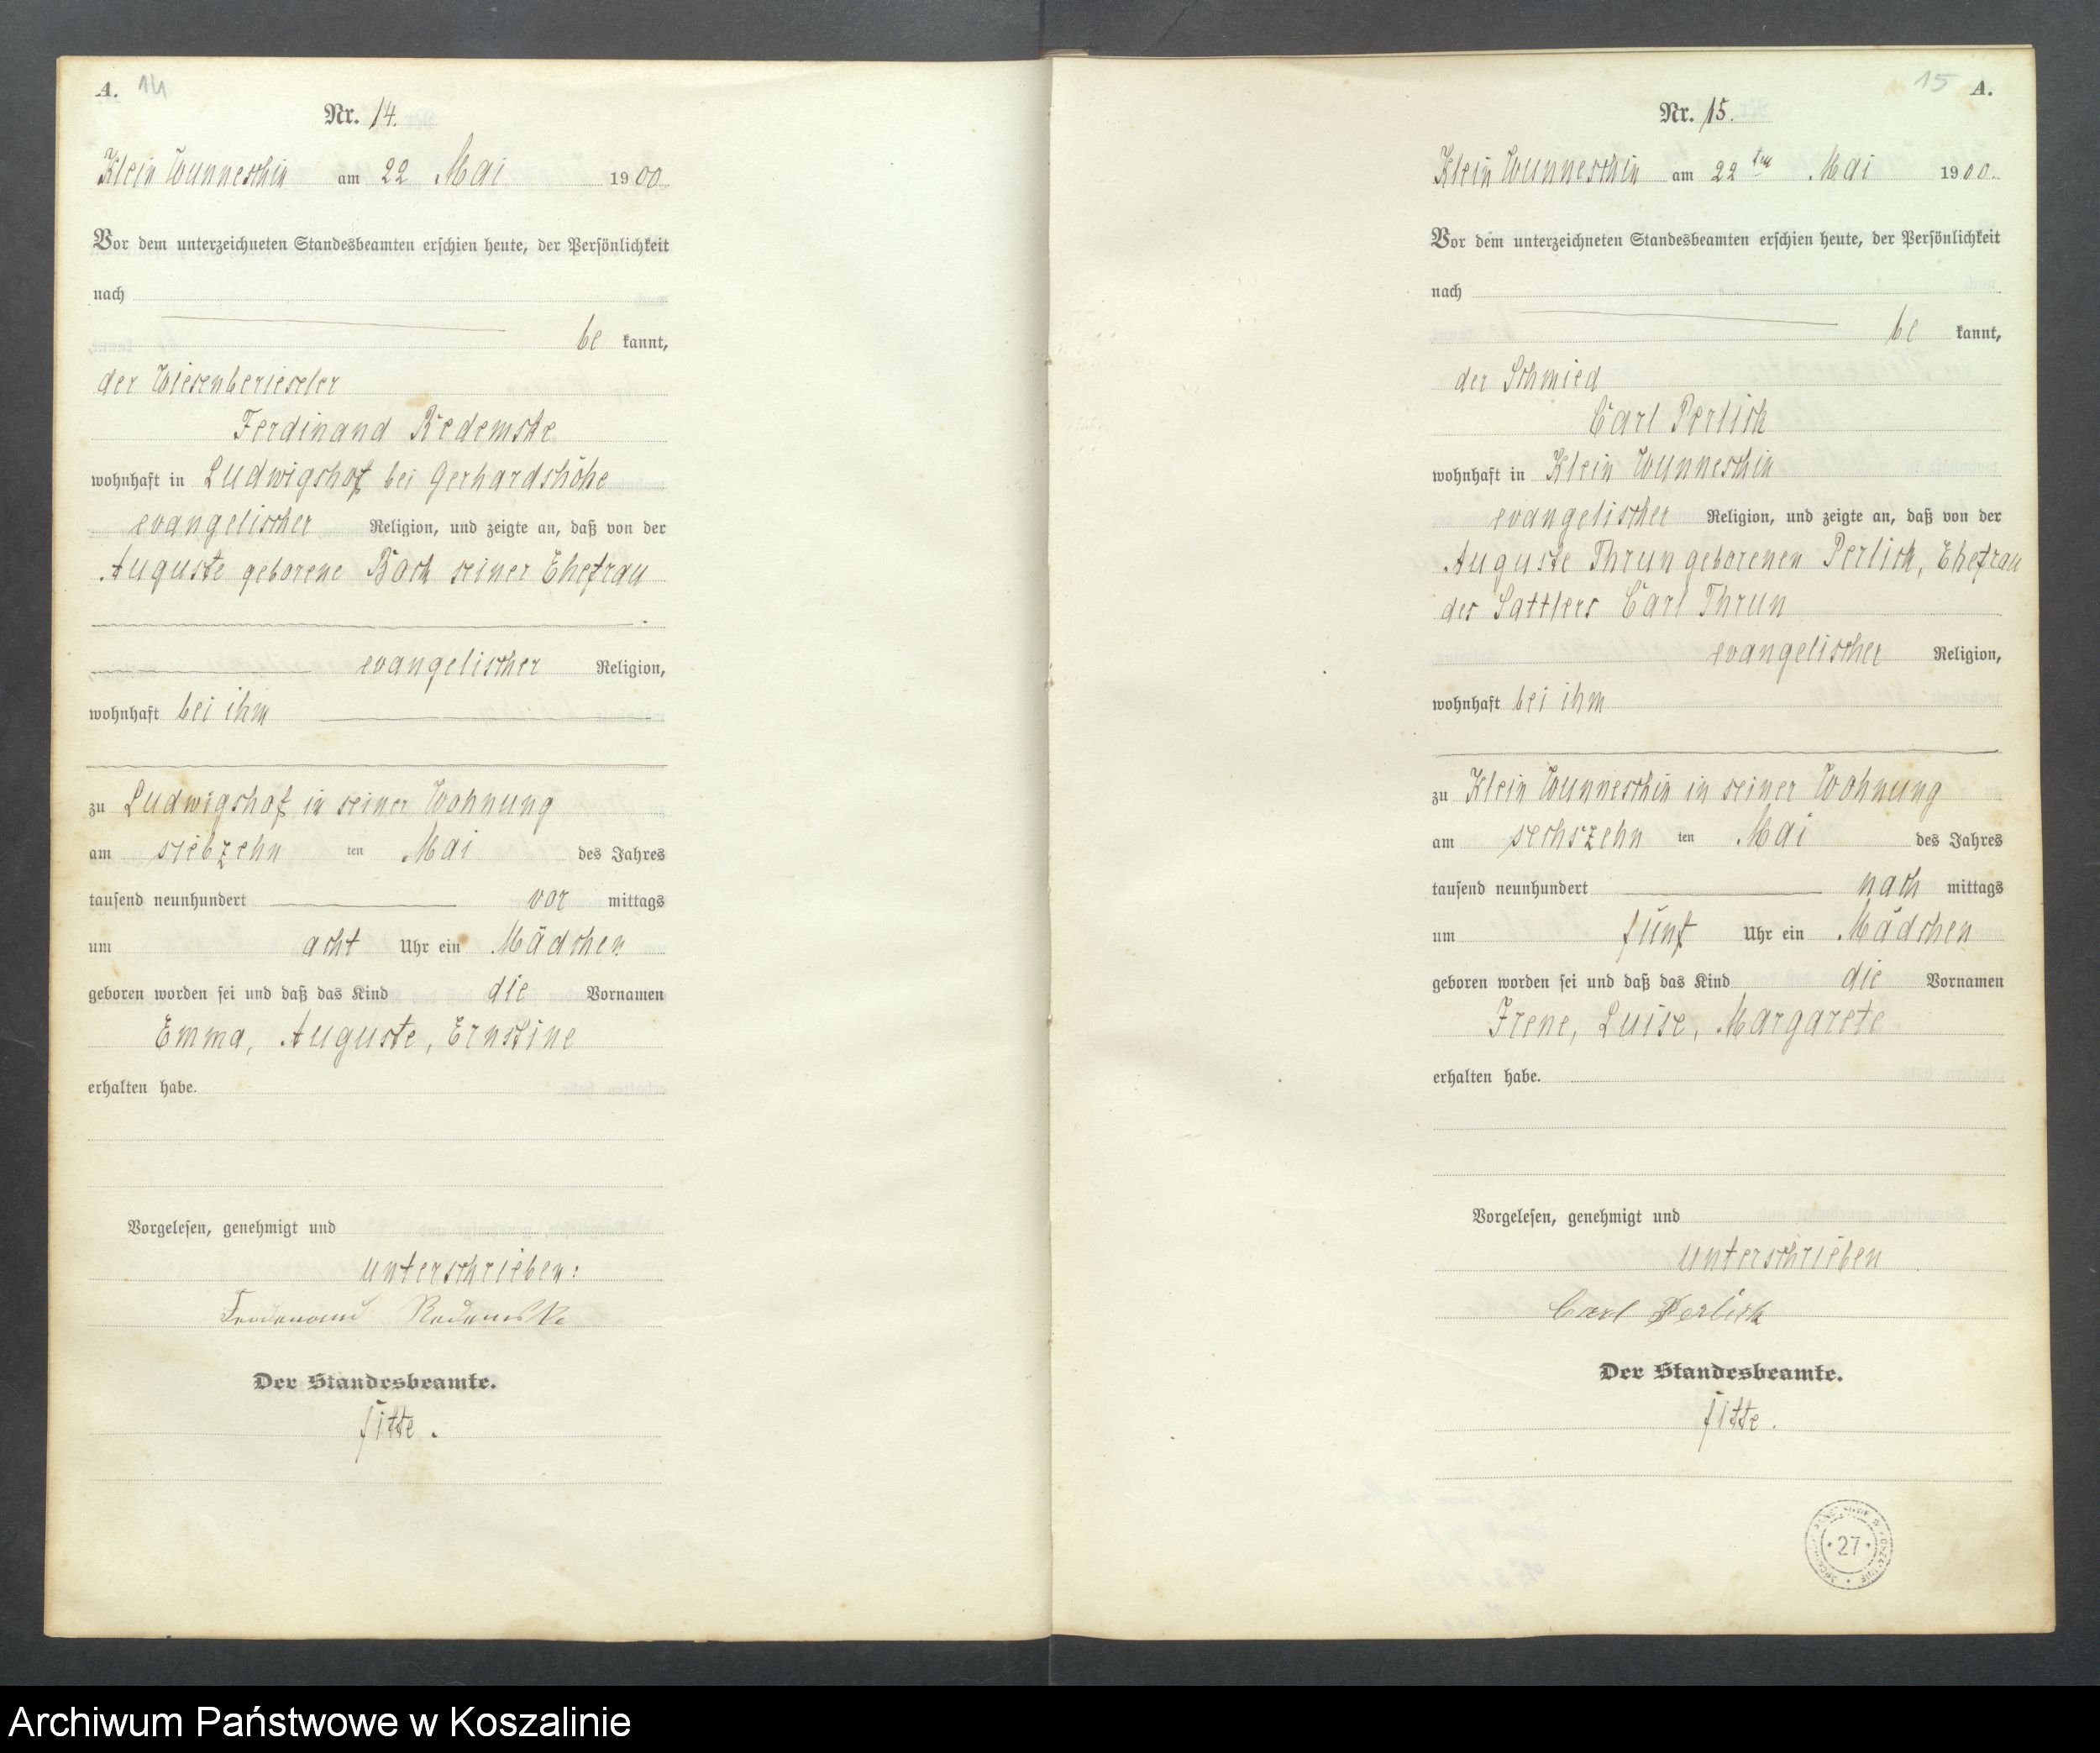 A. 14
Nr. 14.
Klein Wunneschin am 22 Mai 1900
Vor dem unterzeichneten Standesbeamten erschien heute, der Persönlichkeit
nach
be kannt,
der Wiesenberieseler
Ferdinand Redemske
wohnhaft in Ludwigshof bei Gerhardshöhe
evangelischer Religion, und zeigte an, daß von der
Auguste geborene Bock seiner Ehefrau
evangelischer Religion,
wohnhaft bei ihm
zu Ludwigshof in seiner Wohnung
am siebzehn ten Mai des Jahres
tausend neunhundert vor mittags
um acht Uhr ein Mädchen
geboren worden sei und daß das Kind die Vornamen
Emma, Auguste, Ernstine
erhalten habe.
Vorgelesen, genehmigt und
unterschrieben:
Ferdenand Redemske
Der Standesbeamte.
Fitte.
15 A.
Nr. 15.
Klein Wunneschin am 22ten Mai 1900.
Vor dem unterzeichneten Standesbeamten erschien heute, der Persönlichkeit
nach
be kannt,
der Schmied
Carl Perlick
wohnhaft in Klein Wunneschin
evangelischer Religion, und zeigte an, daß von der
Auguste Thrun geborenen Perlick, Ehefrau
des Sattlers Carl Thrun
evangelischer Religion,
wohnhaft bei ihm
zu Klein Wunneschin in seiner Wohnung
am sechszehn ten Mai des Jahres
tausend neunhundert nach mittags
um fünf Uhr ein Mädchen
geboren worden sei und daß das Kind die Vornamen
Irene, Luise, Margarete
erhalten habe.
Vorgelesen, genehmigt und
unterschrieben
Carl Perlick
Der Standesbeamte.
Fitte.
27
Archiwum Państwowe w Koszalinie